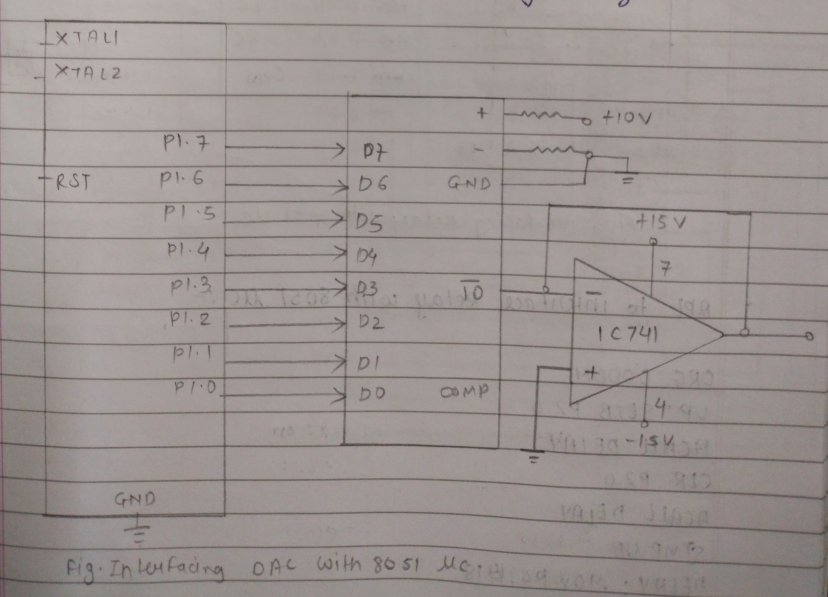 XTAL1
XTAL2
RST
P1.7
P1.6
P1.5
P1.4
P1.3
P1.2
P1.1
P1.0
GND
D7
D6
D5
D4
D3
D2
D1
D0
+
-
GND
IO
COMP
+10V
+15V
7
-
IC741
+
4
-15V
Fig. Interfacing DAC with 8051 MC.